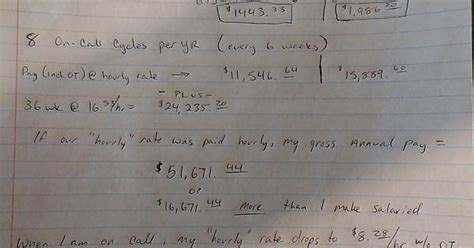 $1443.33 $1,986.20
8 On-Call Cycles per YR (every 6 weeks)
Pay (incl. OT) @ hourly rate → $11,546.64 | $15,889.60
- PLUS -
36 wk @ 16.83/hr. = $24,235.20
If our "hourly" rate was paid hourly, my gross Annual pay =
$51,671.44
or
$16,671.44 more than I make salaried
When I am on call, my "hourly" rate drops to $8.28/hr w/o OT